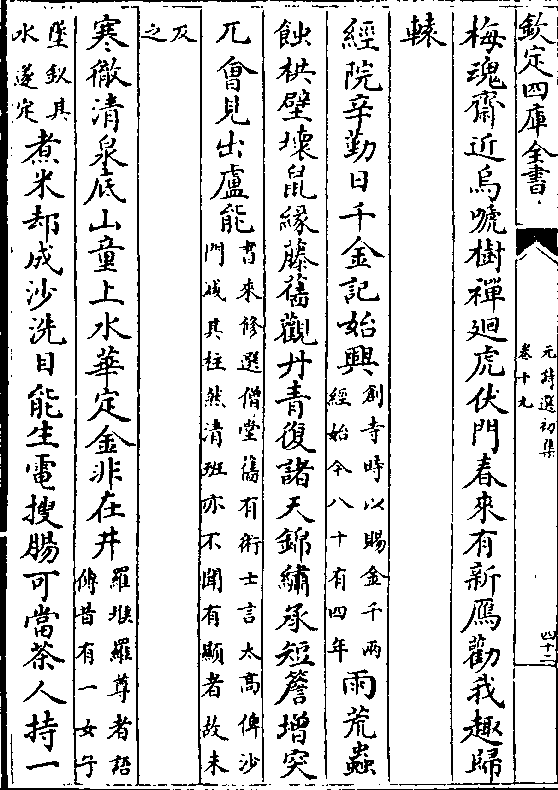 欽定四庫全書
元詩選初集
卷十九
四十二
梅瑰齋近烏嗁樹禪廻虎伏門春來有新鴈勸我趣歸
轅
經院辛勤日千金記始興創寺時以賜金千兩經始今八十有四年雨荒蟲
蝕栱壁壞鼠緣藤舊觀丹青復諸天錦繡承短簷增突
兀會見出盧能書來修選僧堂舊有術士言太高俾沙門減其柱然清班亦不聞有顯者故末
及之
寒徹清泉底山童上水華定金非在井羅堠羅尊者語傳昔有一女子
墜釵其水遂定煮米却成沙洗目能生電搜腸可當茶人持一